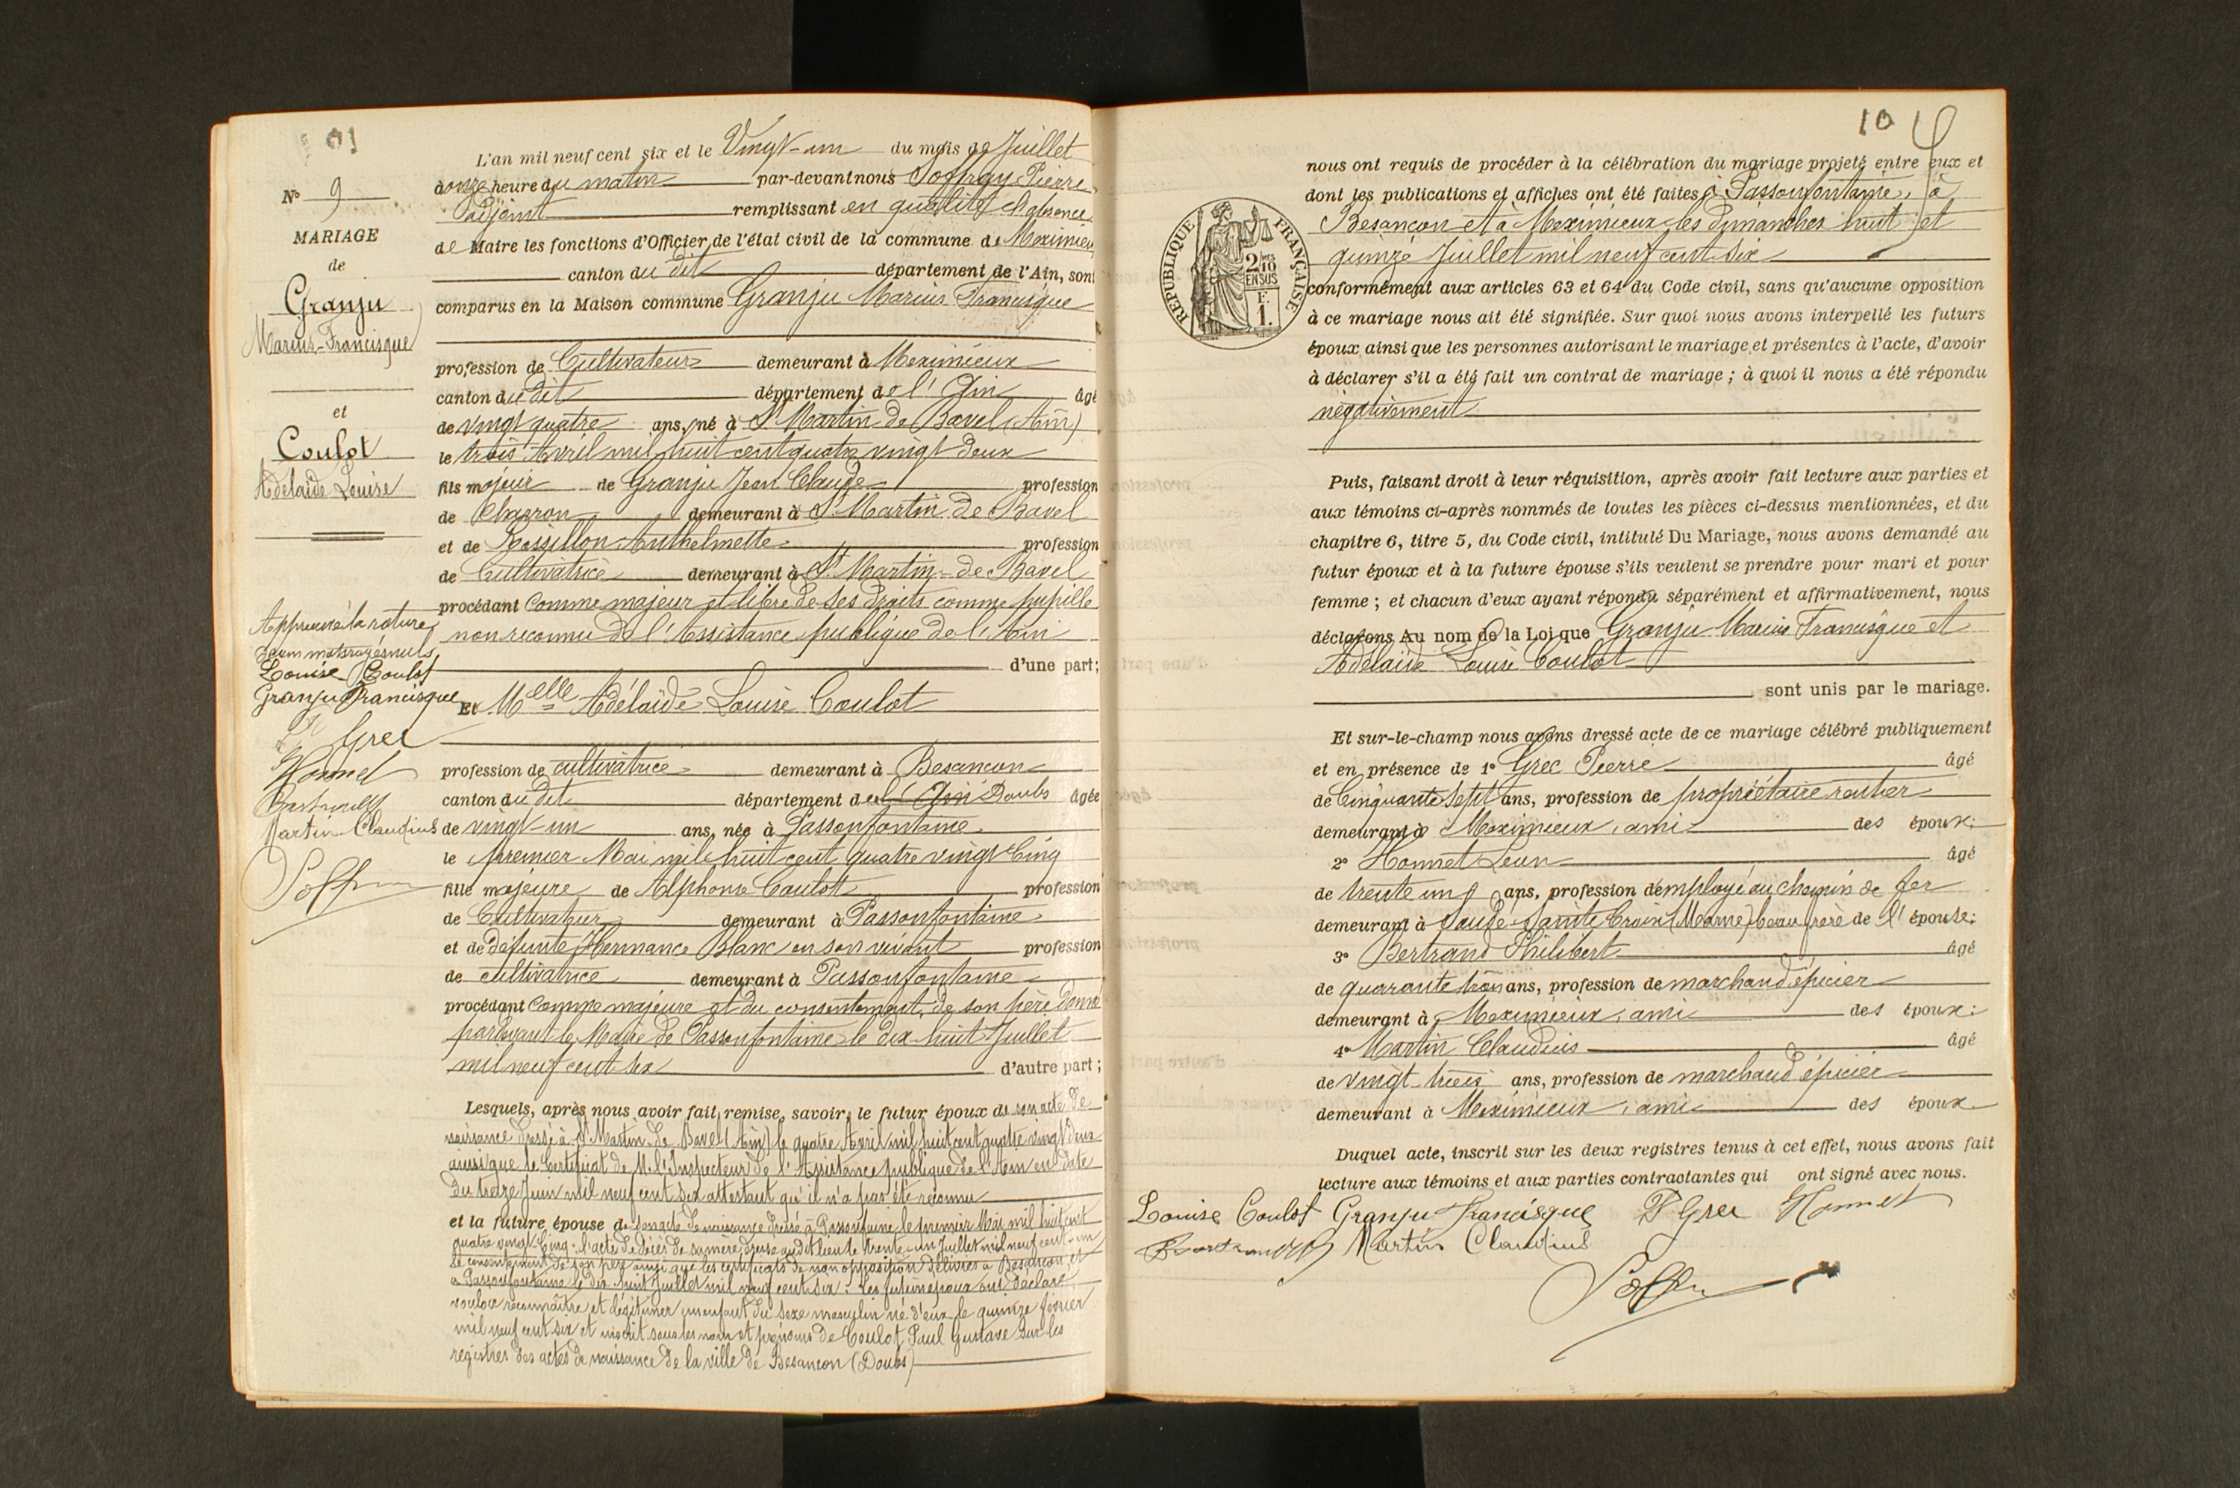 N° 9
MARIAGE
de
Granju
Marius-Francisque
et
Coulot
Adélaïde Louise
Approuvé la rature
de un mot rayés nuls
Louise Coulot
Granju Francisque
P. Grec
Honnet
Bertrand
Martin Claudius
L'an mil neuf cent six et le Vingt-un du mois de Juillet
à onze heure du matin par-devant nous Joffray Pierre
adjoint remplissant en qualité d'absence
de Maire les fonctions d'Officier de l'état civil de la commune de Meximieux
canton du dit département de l'Ain, sont
comparus en la Maison commune Granju Marius Francisque
profession de Cultivateur demeurant à Meximieux
canton du dit département de l'Ain âgé
de vingt quatre ans, né à St Martin de Bavel (Ain)
le trois Avril mil huit cent quatre vingt deux
fils majeur de Granju Jean Claude profession
de charron demeurant à St Martin de Bavel
et de Rossillon Anthelmette profession
de Cultivatrice demeurant à St Martin-de Bavel
procédant comme majeur et libre de ses droits comme pupille
non reconnu de l'Assistance publique de l'Ain
d'une part;
Et Melle Adélaïde Louise Coulot
profession de cultivatrice demeurant à Besançon
canton du dit département de l'Ain Doubs âgée
de vingt-un ans, née à Passonfontaine
le premier Mai mil huit cent quatre vingt Cinq
fille majeure de Alphonse Coulot profession
de Cultivateur demeurant à Passonfontaine
et de défunte Hermance Blanc en son vivant profession
de cultivatrice demeurant à Passonfontaine
procédant comme majeure et du consentement de son père donné
pardevant le Maire de Passonfontaine le dix huit Juillet
mil neuf cent six d'autre part;
Lesquels, après nous avoir fait remise, savoir, le futur époux de son acte de
naissance dressé à St Martin de Bavel (Ain) le quatre Avril mil huit cent quatre vingt deux
ainsi que le Certificat de M. l'Inspecteur de l'Assistance publique de l'Ain en date
du treize Juin mil neuf cent six attestant qu'il n'a pas été reconnu
et la future épouse de son acte de naissance dressé à Passonfontaine le premier Mai mil huit cent
quatre vingt-Cinq : l'acte de décès de sa mère dressé audit lieu le trente-un Juillet mil neuf cent un
le consentement de son père ainsi que les certificats de non opposition délivrés à Besançon et
à Passonfontaine le dix huit Juillet mil neuf cent six : Les futurs époux ont déclaré
vouloir reconnaître et légitimer un enfant du sexe masculin né d'eux le quinze février
mil neuf cent six et inscrit sous les nom et prénoms de Coulot Paul Gustave sur les
registres des actes de naissance de la ville de Besançon (Doubs)
10
REPUBLIQUE FRANÇAISE
2/10
EN SUS
F.
1.
nous ont requis de procéder à la célébration du mariage projeté entre eux et
dont les publications et affiches ont été faites à Passonfontaine, à
Besançon et à Meximieux les dimanches huit et
quinze Juillet mil neuf cent six
conformément aux articles 63 et 64 du Code civil, sans qu'aucune opposition
à ce mariage nous ait été signifiée. Sur quoi nous avons interpellé les futurs
époux ainsi que les personnes autorisant le mariage et présentes à l'acte, d'avoir
à déclarer s'il a été fait un contrat de mariage; à quoi il nous a été répondu
négativement
Puis, faisant droit à leur réquisition, après avoir fait lecture aux parties et
aux témoins ci-après nommés de toutes les pièces ci-dessus mentionnées, et du
chapitre 6, titre 5, du Code civil, intitulé Du Mariage, nous avons demandé au
futur époux et à la future épouse s'ils veulent se prendre pour mari et pour
femme; et chacun d'eux ayant répondu séparément et affirmativement, nous
déclarons Au nom de la Loi que Granju Marius Francisque et
Adélaïde Louise Coulot
sont unis par le mariage.
Et sur-le-champ nous avons dressé acte de ce mariage célébré publiquement
et en présence de 1° Grec Pierre âgé
de Cinquante sept ans, profession de propriétaire rentier
demeurant à Meximieux, ami des époux;
2° Honnet Léon âgé
de trente un ans, profession d'employé au chemin de fer
demeurant à Soudé-Sainte Croix (Marne) beau frère de l'épouse;
3° Bertrand Philibert âgé
de quarante trois ans, profession de marchand épicier
demeurant à Meximieux, ami des époux;
4° Martin Claudius âgé
de vingt-trois ans, profession de marchand épicier
demeurant à Meximieux, ami des époux
Duquel acte, inscrit sur les deux registres tenus à cet effet, nous avons fait
lecture aux témoins et aux parties contractantes qui ont signé avec nous.
Louise Coulot Granju Francisque P. Grec Honnet
Bertrand Martin Claudius